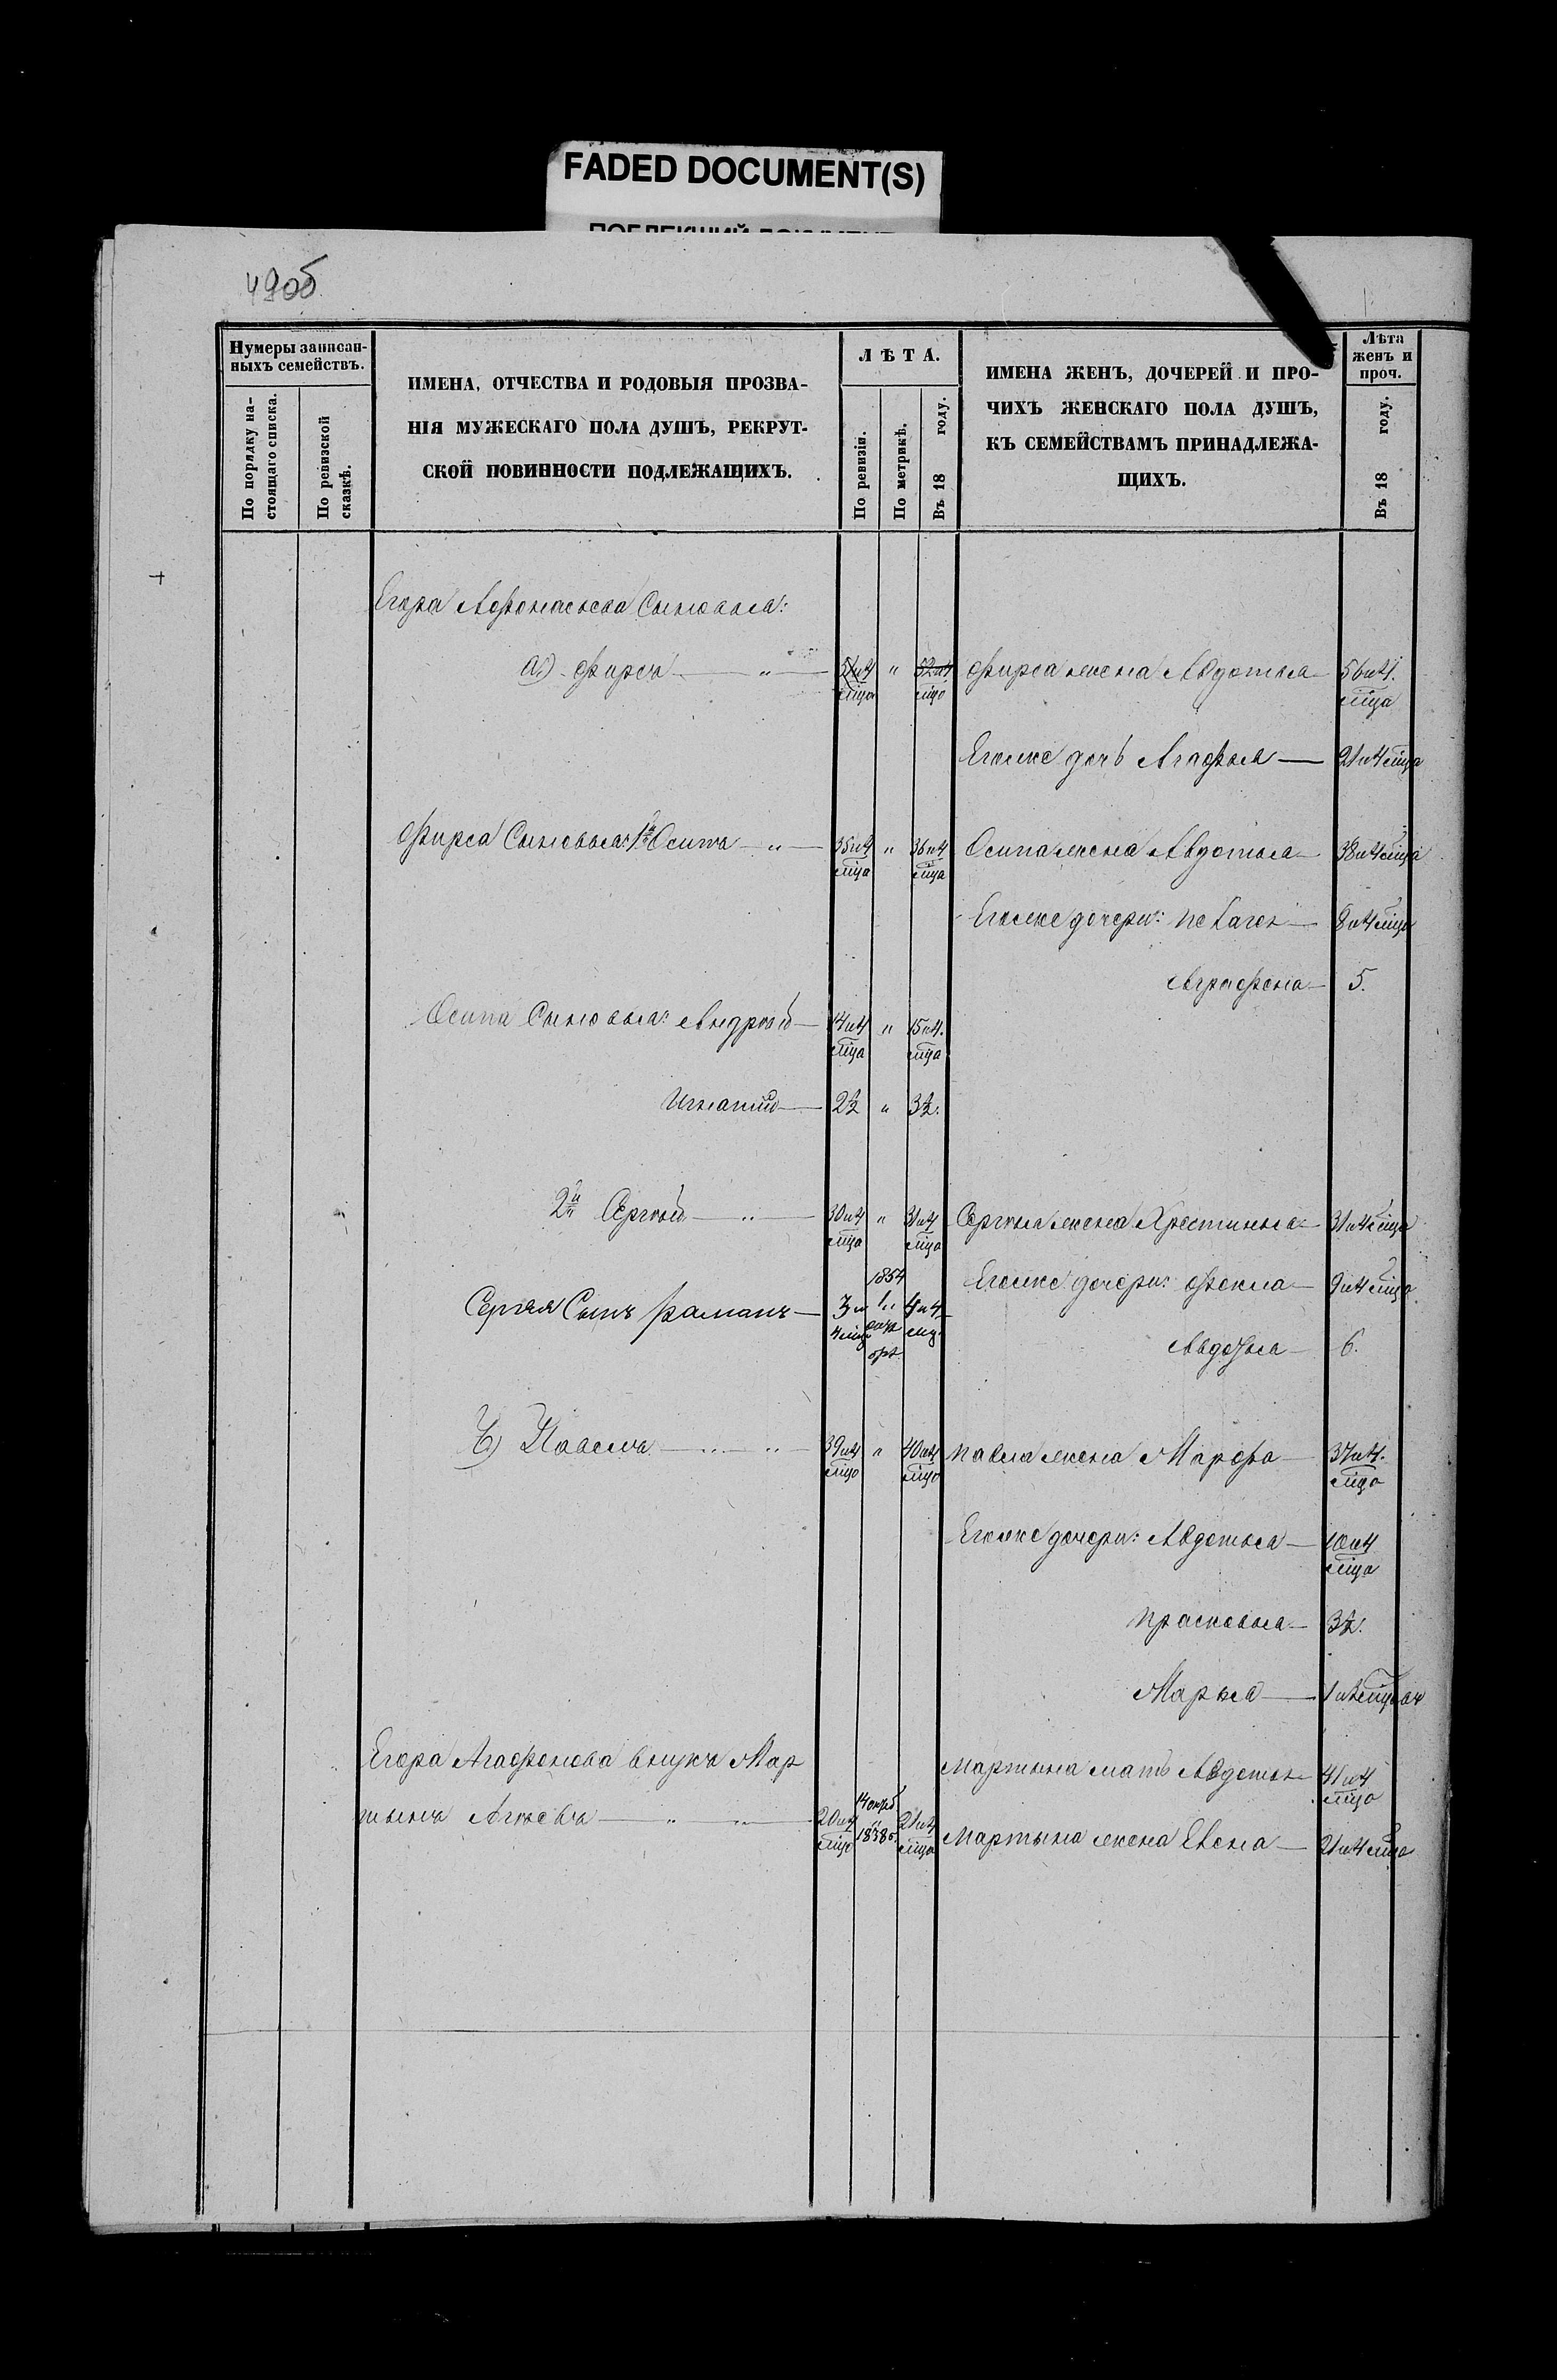 FADED DOCUMENT(S)
490б
Нумеры записан-
ныхъ семействъ.
По порядку на-
стоящаго списка.
По ревизской
сказкѣ.
ИМЕНА, ОТЧЕСТВА И РОДОВЫЯ ПРОЗВА-
НІЯ МУЖЕСКАГО ПОЛА ДУШЪ, РЕКРУТ-
СКОЙ ПОВИННОСТИ ПОДЛЕЖАЩИХЪ.
ЛѢТА.
По ревизіи.
По метрикѣ.
Въ 18 году.
ИМЕНА ЖЕНЪ, ДОЧЕРЕЙ И ПРО-
ЧИХЪ ЖЕНСКАГО ПОЛА ДУШЪ,
КЪ СЕМЕЙСТВАМЪ ПРИНАДЛЕЖА-
ЩИХЪ.
Лѣта
женъ и
проч.
Въ 18 году.
Егора Сыновья:
а) Фирсъ — " — 51 и 4 мца " 52 и 4 мца Фирса жена Авдотья — 56 и 4. мца
Егоже дочь Агафья — 21 и 4 мца
Фирса Сыновья: 1й Осипъ — " — 35 и 4 мца " 36 и 4 мца Осипа жена Авдотья — 38 и 4 мца
Егоже дочери: Пелагея — 8 и 4 мца
Аграфена — 5.
Осипа Сыновья: Андрей — 14 и 4 мца " 15 и 4. мца
Игнатій — 2½ " 3½.
2й Сергѣй — " — 30 и 4 мца " 31 и 4 мца Сергѣя жена Хрестинья — 31 и 4 мца
Егоже дочери: Фекла — 9 и 4 мца
Сергѣя Сынъ Романъ — 3 и 4 мца 1854 4 и 4 мц.
Авдотья — 6.
б) Павелъ — " " — 39 и 4 мца " 40 и 4 мца Павла жена Марфа — 37 и 4. мца
Егоже дочери: Авдотья — 10 и 4 мца
Прасковья — 3½.
Марья — 1
Егора внукъ Мар
тынъ — " " — 20 и 4 мца 14 1838 21 и 4 мца
Мартына мать Авдотья 41 и 4 мца
Мартына жена Елена — 21 и 4 мца